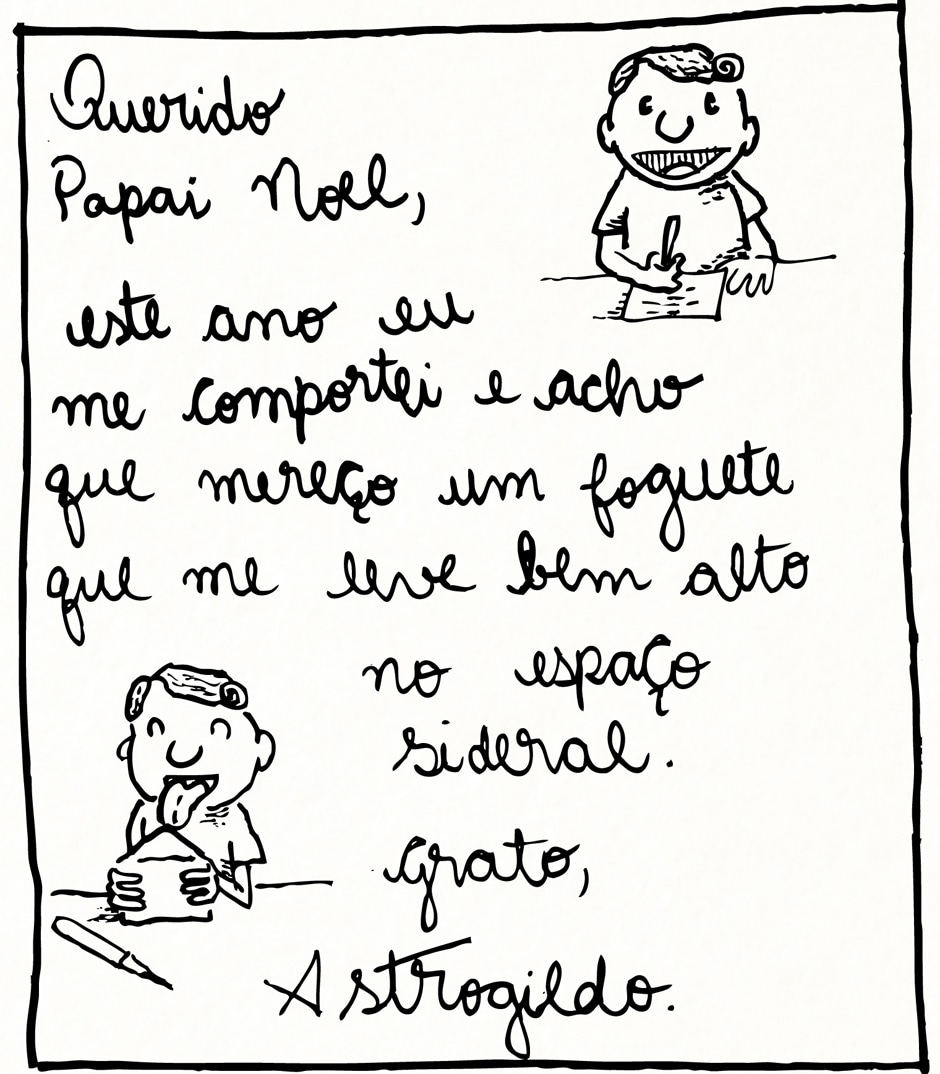 Querido
Papai Noel,
este ano eu
me comportei e acho
que mereço um foguete
que me leve bem alto
no espaço
sideral.
grato,
Astrogildo.